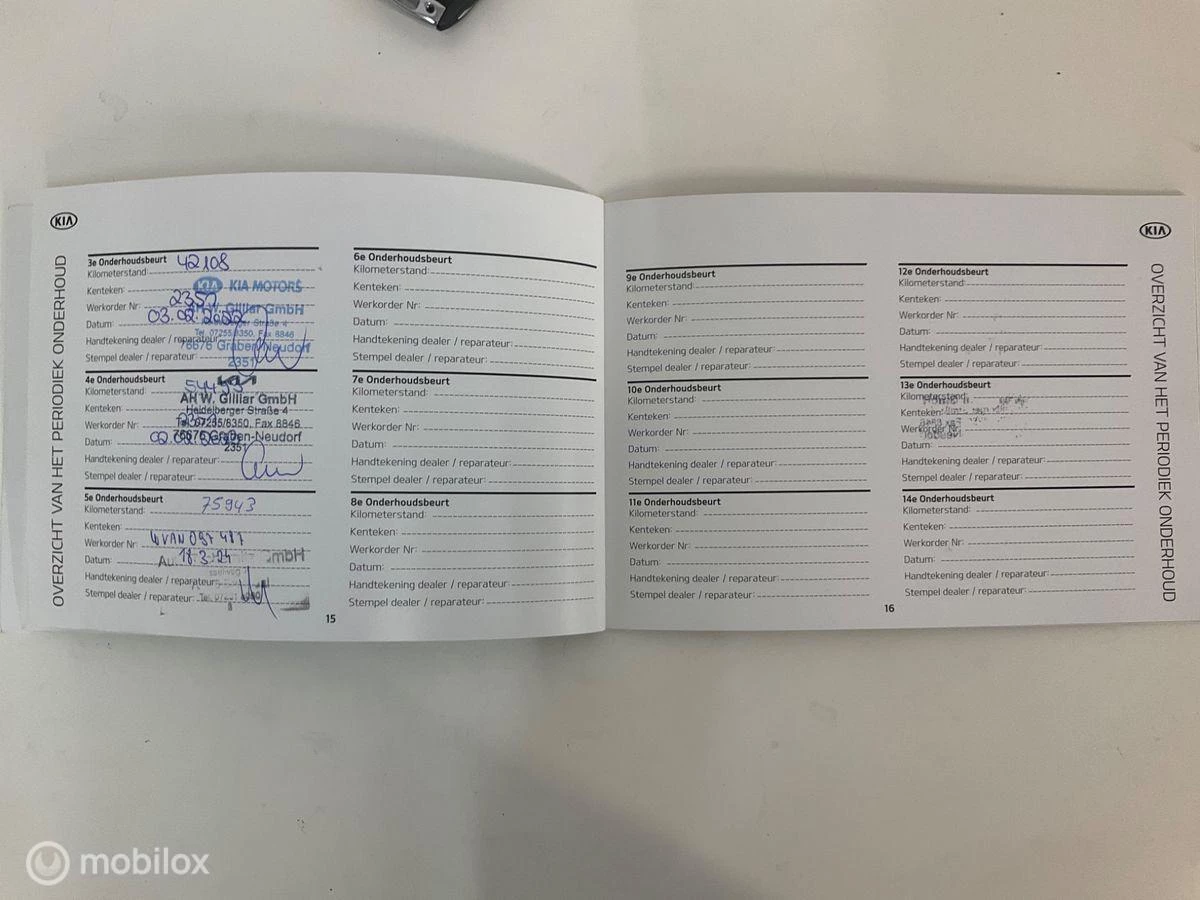 KIA
OVERZICHT VAN HET PERIODIEK ONDERHOUD
3e Onderhoudsbeurt
Kilometerstand: 42108
Kenteken:
KIA KIA MOTORS
Werkorder Nr: 2351
AH W. Gilliar GmbH
Datum: 03.02.2022
Heidelberger Straße 4
Tel. 07255/8350, Fax 8846
Handtekening dealer / reparateur:
76676 Graben-Neudorf
Stempel dealer / reparateur:
2351
4e Onderhoudsbeurt
Kilometerstand:
KIA
AH W. Gilliar GmbH
Kenteken:
Heidelberger Straße 4
Werkorder Nr:
Tel. 07255/8350, Fax 8846
Datum: 02.02.
76676 Graben-Neudorf
2351
Handtekening dealer / reparateur:
Stempel dealer / reparateur:
5e Onderhoudsbeurt
Kilometerstand: 75943
Kenteken:
Werkorder Nr:
Datum: 18.3.24
Au GmbH
Handtekening dealer / reparateur:
Stempel dealer / reparateur:
6e Onderhoudsbeurt
Kilometerstand:
Kenteken:
Werkorder Nr:
Datum:
Handtekening dealer / reparateur:
Stempel dealer / reparateur:
7e Onderhoudsbeurt
Kilometerstand:
Kenteken:
Werkorder Nr:
Datum:
Handtekening dealer / reparateur:
Stempel dealer / reparateur:
8e Onderhoudsbeurt
Kilometerstand:
Kenteken:
Werkorder Nr:
Datum:
Handtekening dealer / reparateur:
Stempel dealer / reparateur:
15
9e Onderhoudsbeurt
Kilometerstand:
Kenteken:
Werkorder Nr:
Datum:
Handtekening dealer / reparateur:
Stempel dealer / reparateur:
10e Onderhoudsbeurt
Kilometerstand:
Kenteken:
Werkorder Nr:
Datum:
Handtekening dealer / reparateur:
Stempel dealer / reparateur:
11e Onderhoudsbeurt
Kilometerstand:
Kenteken:
Werkorder Nr:
Datum:
Handtekening dealer / reparateur:
Stempel dealer / reparateur:
12e Onderhoudsbeurt
Kilometerstand:
Kenteken:
Werkorder Nr:
Datum:
Handtekening dealer / reparateur:
Stempel dealer / reparateur:
13e Onderhoudsbeurt
Kilometerstand:
Kenteken:
Werkorder Nr:
Datum:
Handtekening dealer / reparateur:
Stempel dealer / reparateur:
14e Onderhoudsbeurt
Kilometerstand:
Kenteken:
Werkorder Nr:
Datum:
Handtekening dealer / reparateur:
Stempel dealer / reparateur:
16
KIA
OVERZICHT VAN HET PERIODIEK ONDERHOUD
mobilox